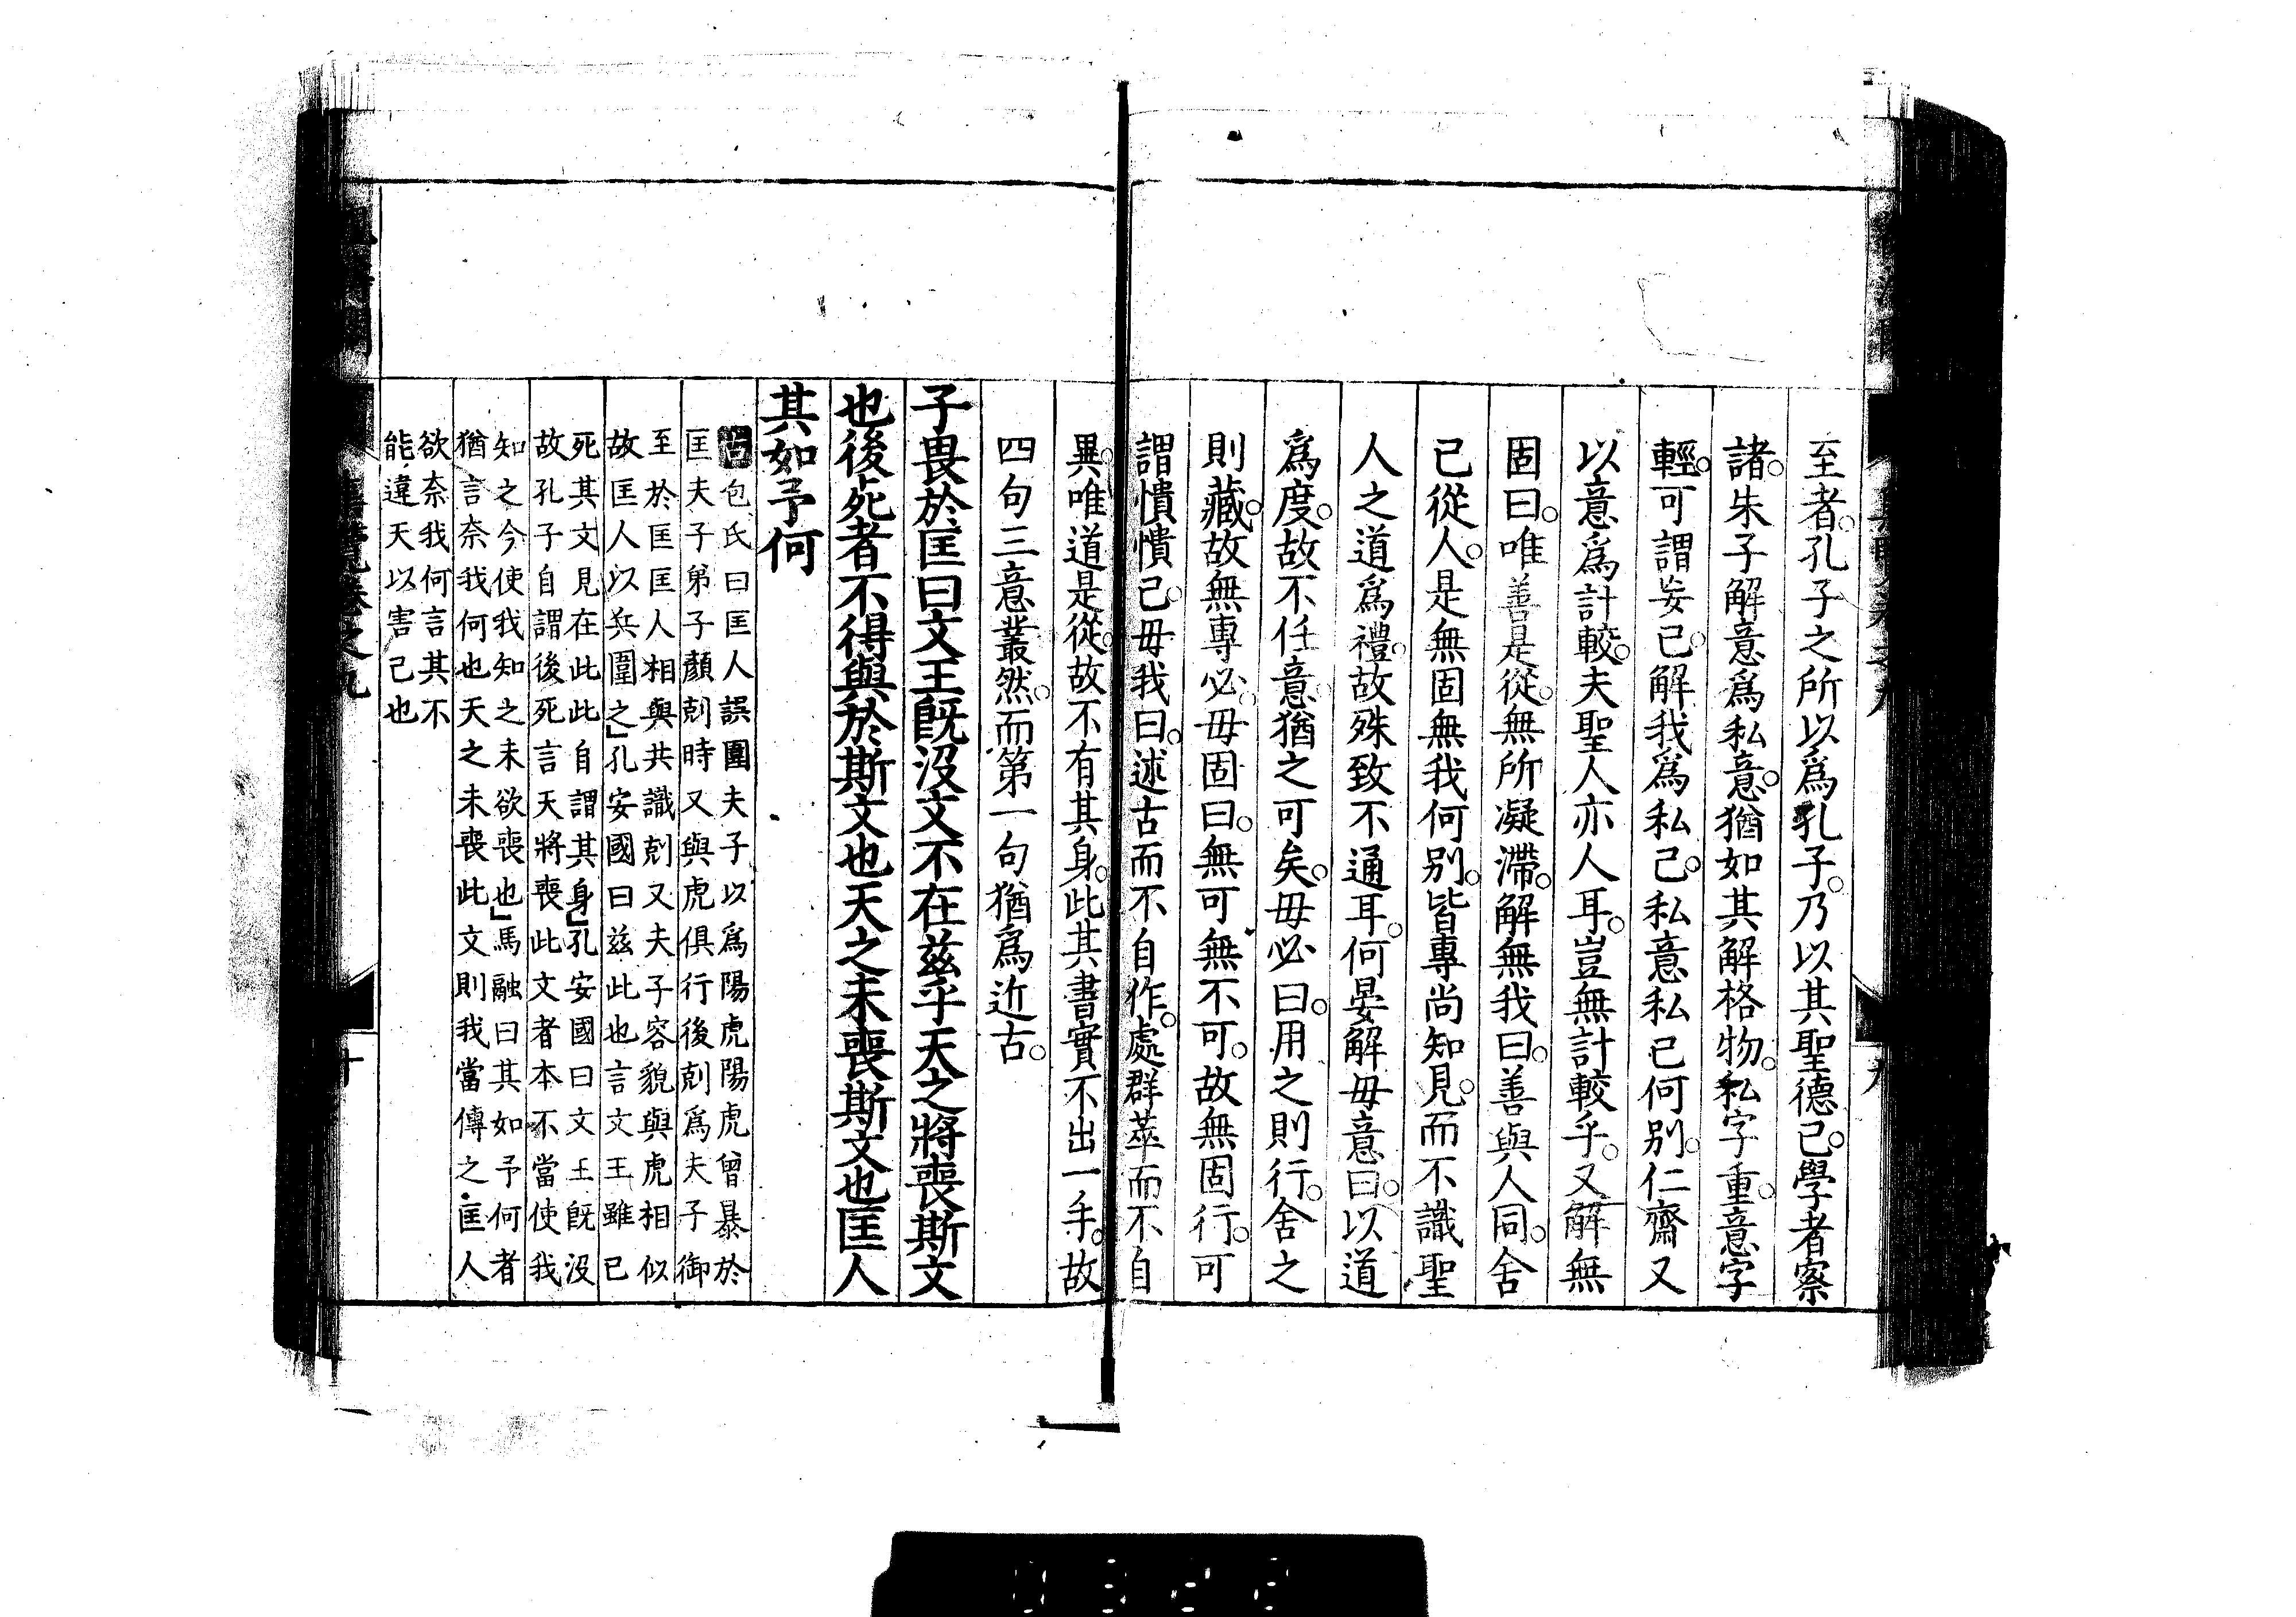 至者。孔子之所以爲孔子。乃以其聖德已。學者察
諸。朱子解意爲私意。猶如其解格物。私字重。意字
輕。可謂妄已。解我爲私己。私意私己何別。仁齋又
以意爲計較。夫聖人亦人耳。豈無計較乎。又解無
固曰。唯善是從。無所凝滯。解無我曰。善與人同。舍
己從人。是無固無我何別。皆專尚知見。而不識聖
人之道爲禮。故殊致不通耳。何晏解毋意曰。以道
爲度。故不任意。猶之可矣。毋必曰。用之則行。舍之
則藏。故無專必。毋固曰。無可無不可。故無固行。可
謂憒憒已。毋我曰。述古而不自作。處群萃而不自
異。唯道是從。故不有其身。此其書實不出一手。故
四句三意叢然。而第一句猶爲近古。
子畏於匡曰文王既沒文不在茲乎天之將喪斯文
也後死者不得與於斯文也天之未喪斯文也匡人
其如予何
古包氏曰匡人誤圍夫子以爲陽虎陽虎曾暴於
匡夫子弟子顏剋時又與虎俱行後剋爲夫子御
至於匡匡人相與共識剋又夫子容貌與虎相似
故匡人以兵圍之」孔安國曰茲此也言文王雖已
死其文見在此此自謂其身」孔安國曰文王既沒
故孔子自謂後死言天將喪此文者本不當使我
知之今使我知之未欲喪也」馬融曰其如予何者
猶言奈我何也天之未喪此文則我當傳之匡人
欲奈我何言其不
能違天以害己也
卷之九
十
九
0322